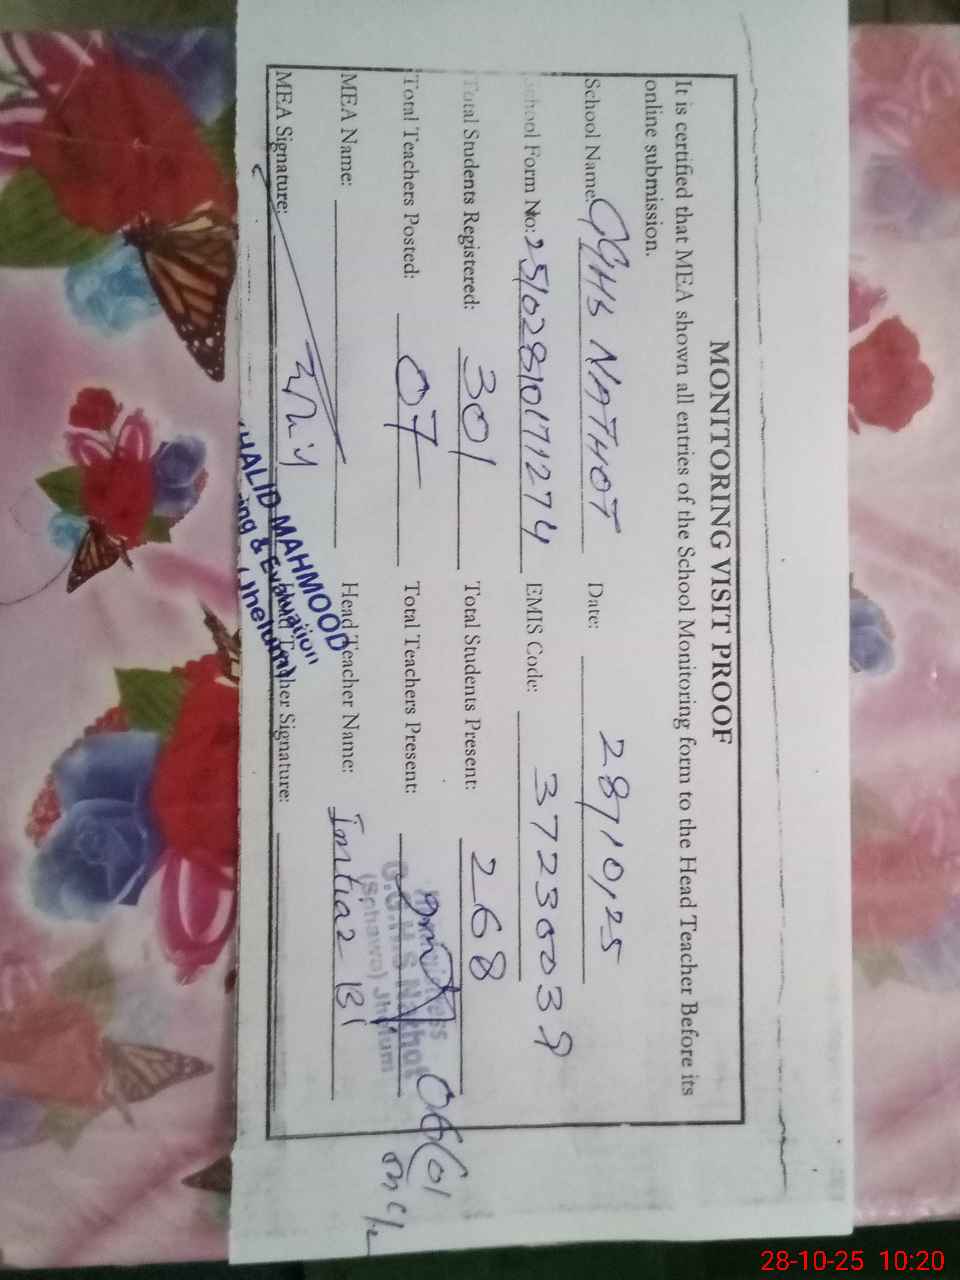 MONITORING VISIT PROOF
It is certified that MEA shown all entries of the School Monitoring form to the Head Teacher Before its
online submission.
School Name: GGHS NATHOT Date: 28/10/25
School Form No: 25102810171274 EMIS Code: 37230039
Total Students Registered: 301 Total Students Present: 268
Total Teachers Posted: 07 Total Teachers Present: 06(01
MEA Name: Head Teacher Name: Imtiaz Bi
MEA Signature: Teacher Signature:
HALID MAHMOOD
ing & Evaluation
(Jhelum)
G.G.H.S Nathot
(Sphawa) Jhelum
28-10-25 10:20